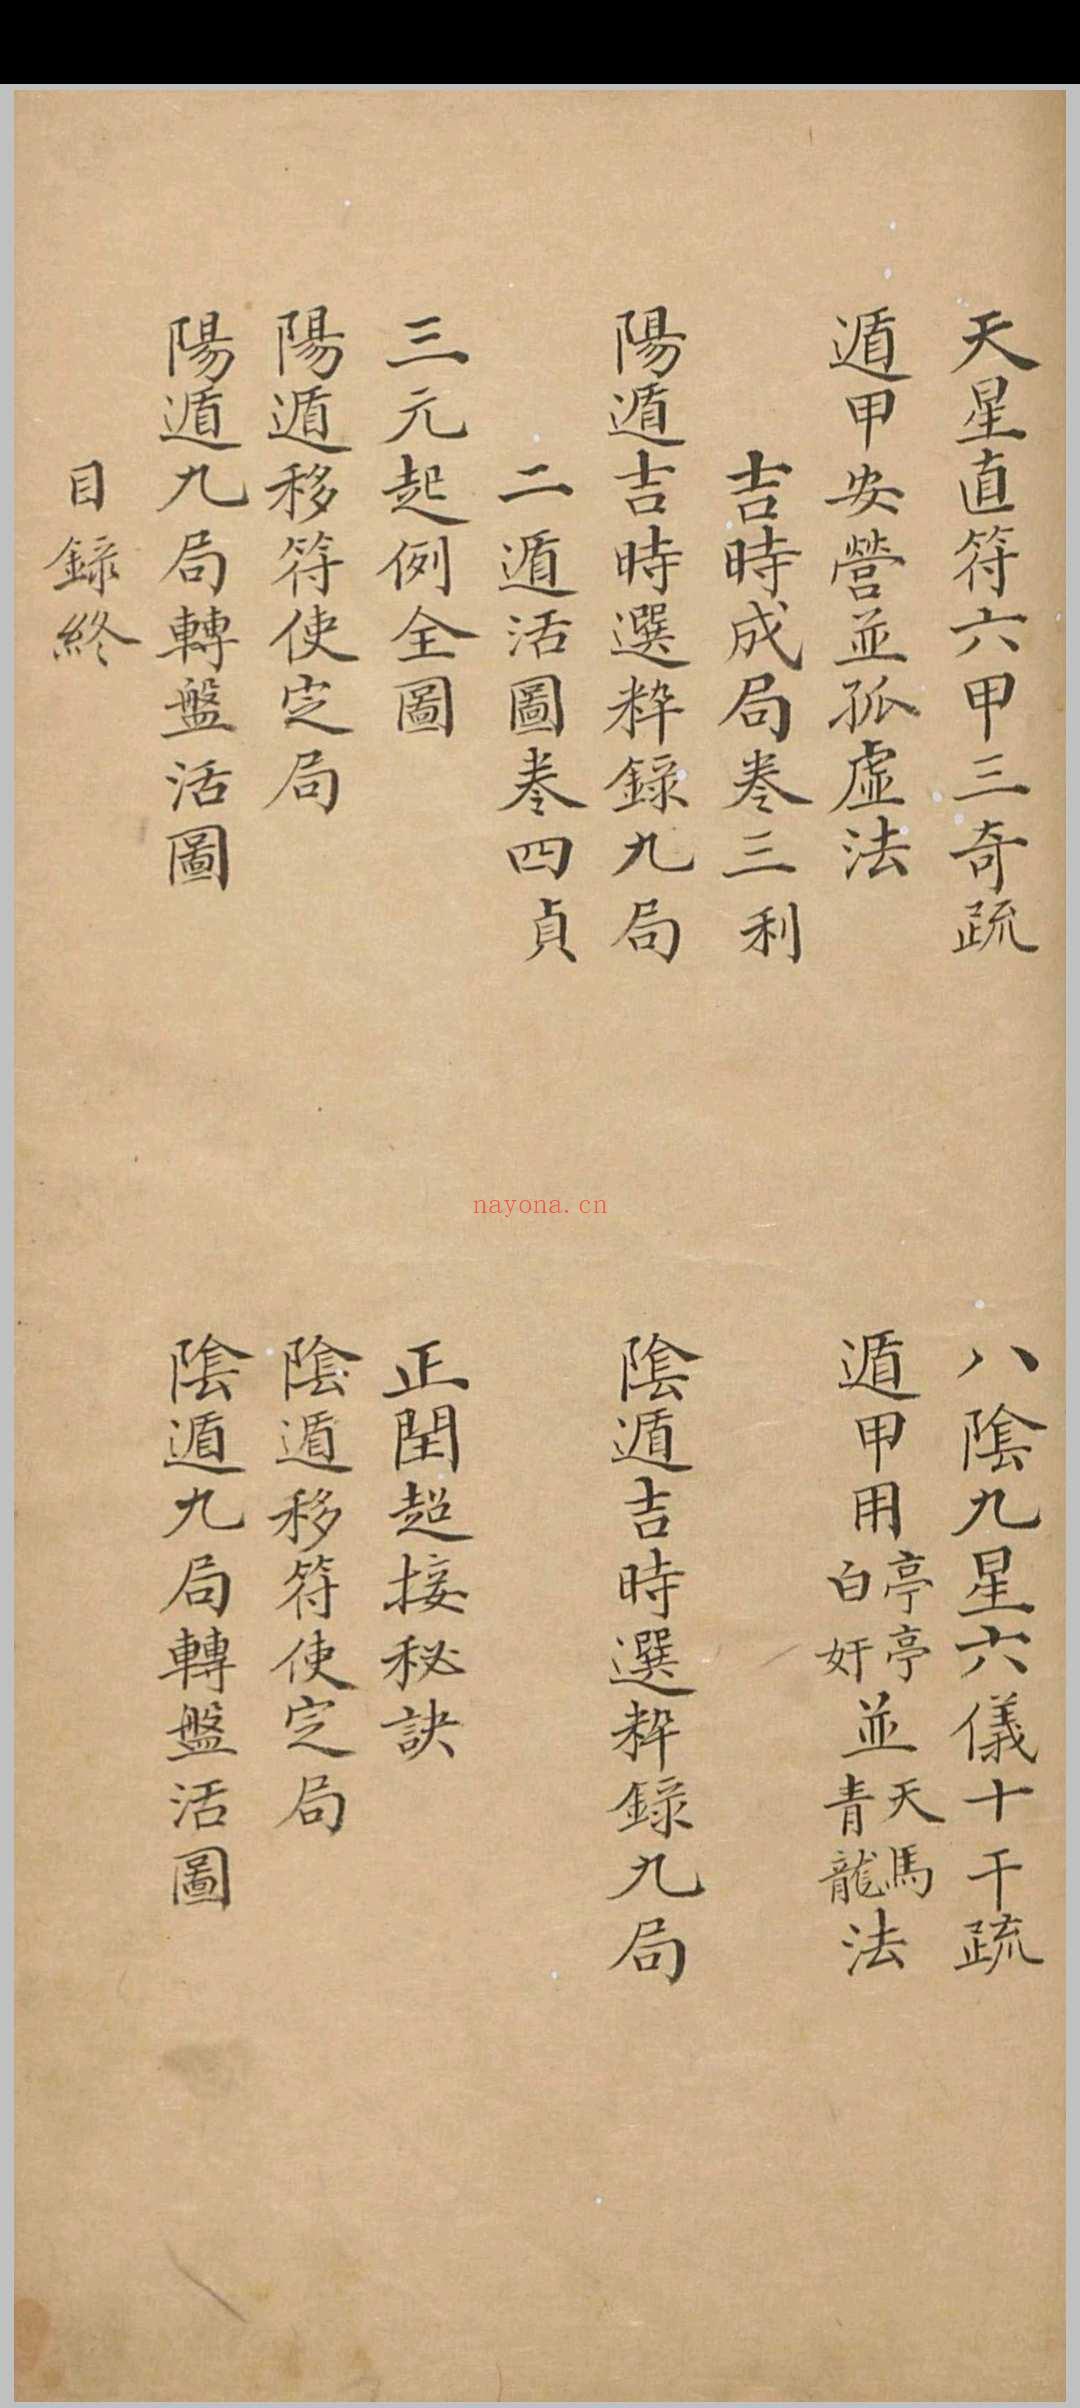 天星直符六甲三奇疏　八陰九星六儀十干疏
遁甲安營並孤虛法　遁甲用亭亭白奸並天馬青龍法
吉時成局卷三利
陽遁吉時選粹錄九局　陰遁吉時選粹錄九局
二遁活圖卷四貞
三元起例全圖　正閏超接秘訣
陽遁移符使定局　陰遁移符使定局
陽遁九局轉盤活圖　陰遁九局轉盤活圖
目錄終
nayona.cn